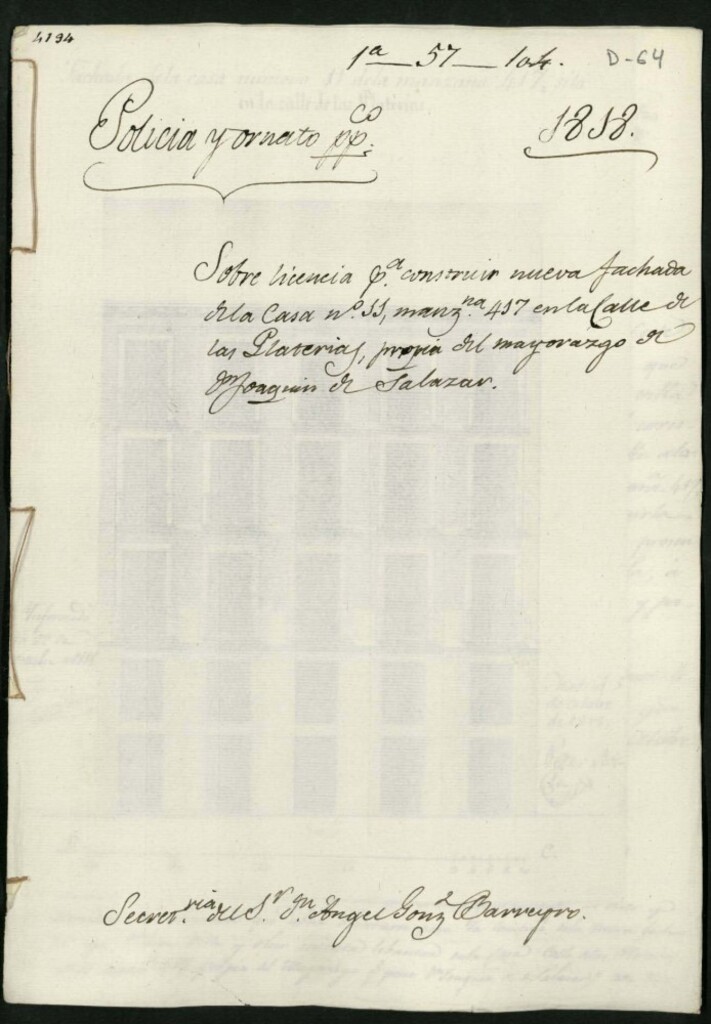 4194
1ª — 57 — 104.
D-64
Policia y ornato pp.co
1818.
Sobre licencia p.a construir nueva fachada
dela Casa n.o 11, manz.na 417 en la Calle de
las Platerias, propia del mayorazgo de
Dn Joaquin de Salazar.
Secret.ria del S.r d.n Angel Gonz.l Barreyro.